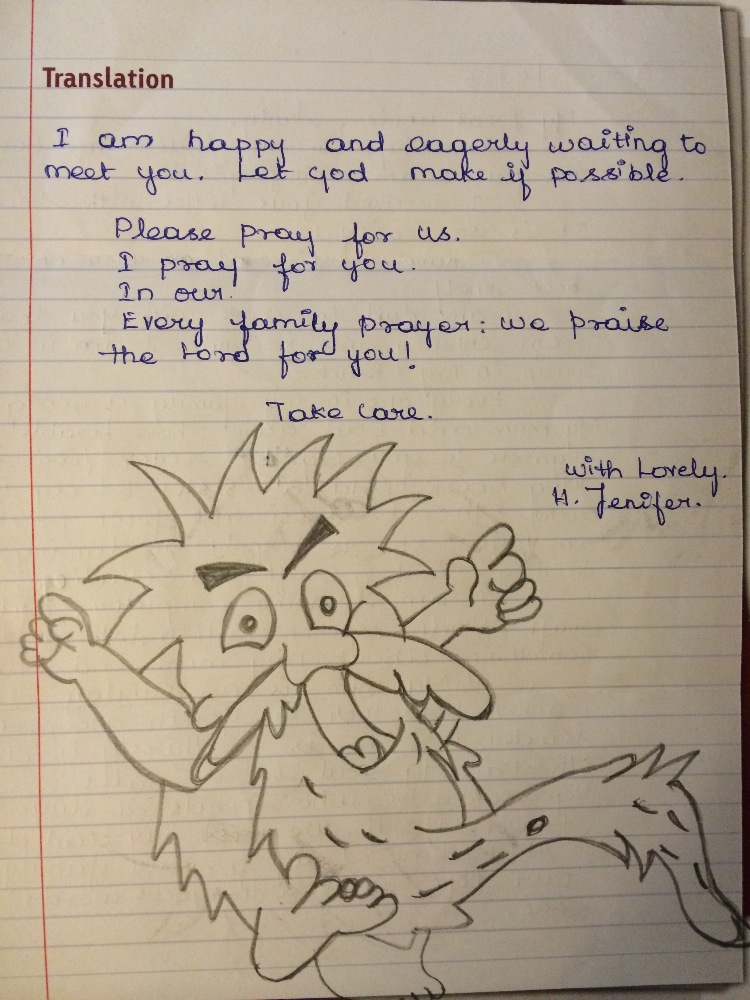 Translation
I am happy and eagerly waiting to
meet you. Let God make if possible.
Please pray for us.
I pray for you.
In our.
Every family prayer: we praise
the Lord for you!
Take care.
with Lovely.
H. Jenifer.